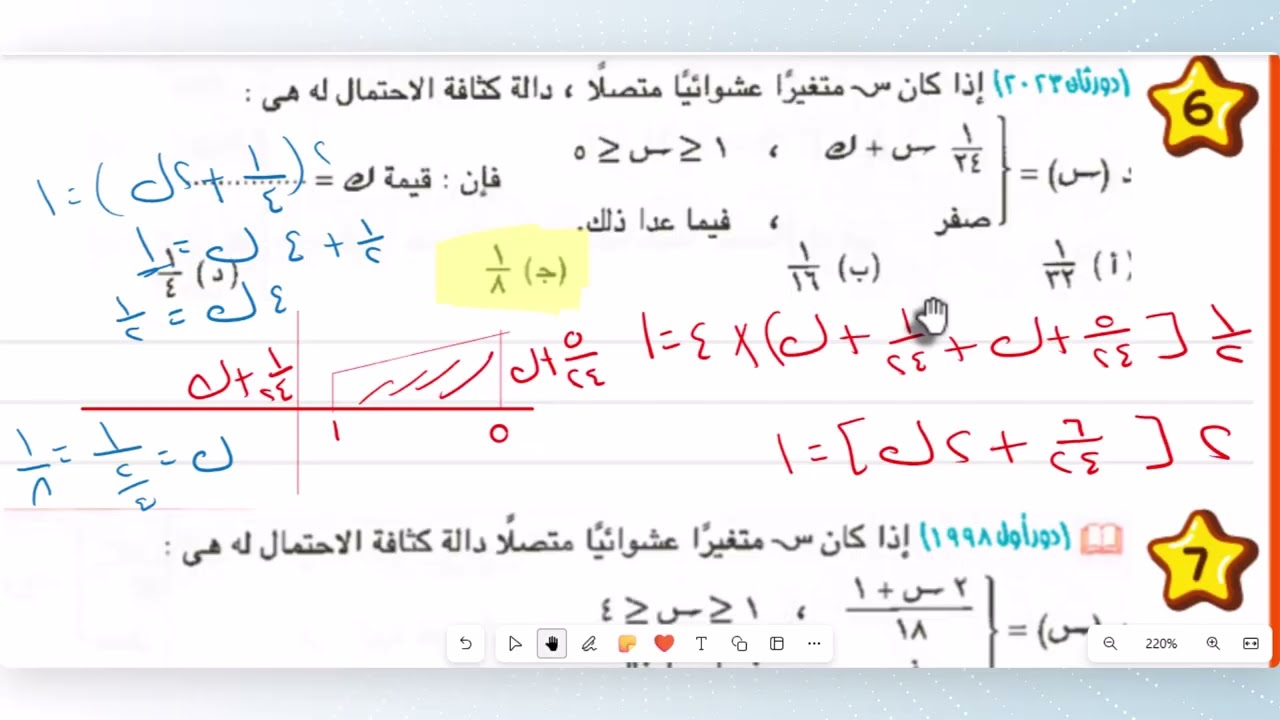 6
(دور ثان ٢٠٢٣) إذا كان س متغيرًا عشوائيًا متصلًا ، دالة كثافة الاحتمال له هى :
د (س) = { ١/٢٤ س + ك ، ١ ≤ س ≤ ٥
صفر ، فيما عدا ذلك.
فإن : قيمة ك = ............
(أ) ١/٣٢ (ب) ١/١٦ (ج) ١/٨ (د) ١/٤
٢ (١/٤ + ٢ك) = ١
١/٢ + ٤ ك = ١
٤ ك = ١/٢
ك = ١/٢/٤ = ١/٨
١/٢ [٥/٢٤ + ك + ١/٢٤ + ك) × ٤ = ١
٢ [٦/٢٤ + ٢ك] = ١
١/٢٤ + ك
٥/٢٤ + ك
١ ٥
7
(دور أول ١٩٩٨) إذا كان س متغيرًا عشوائيًا متصلًا دالة كثافة الاحتمال له هى :
(س) = { ٢ س + ١ / ١٨ ، ١ ≤ س ≤ ٤
T
220%